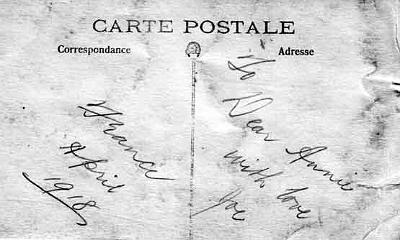 CARTE POSTALE
Correspondance
Adresse
France
April
1918
To
Dear Annie
with love
Joe